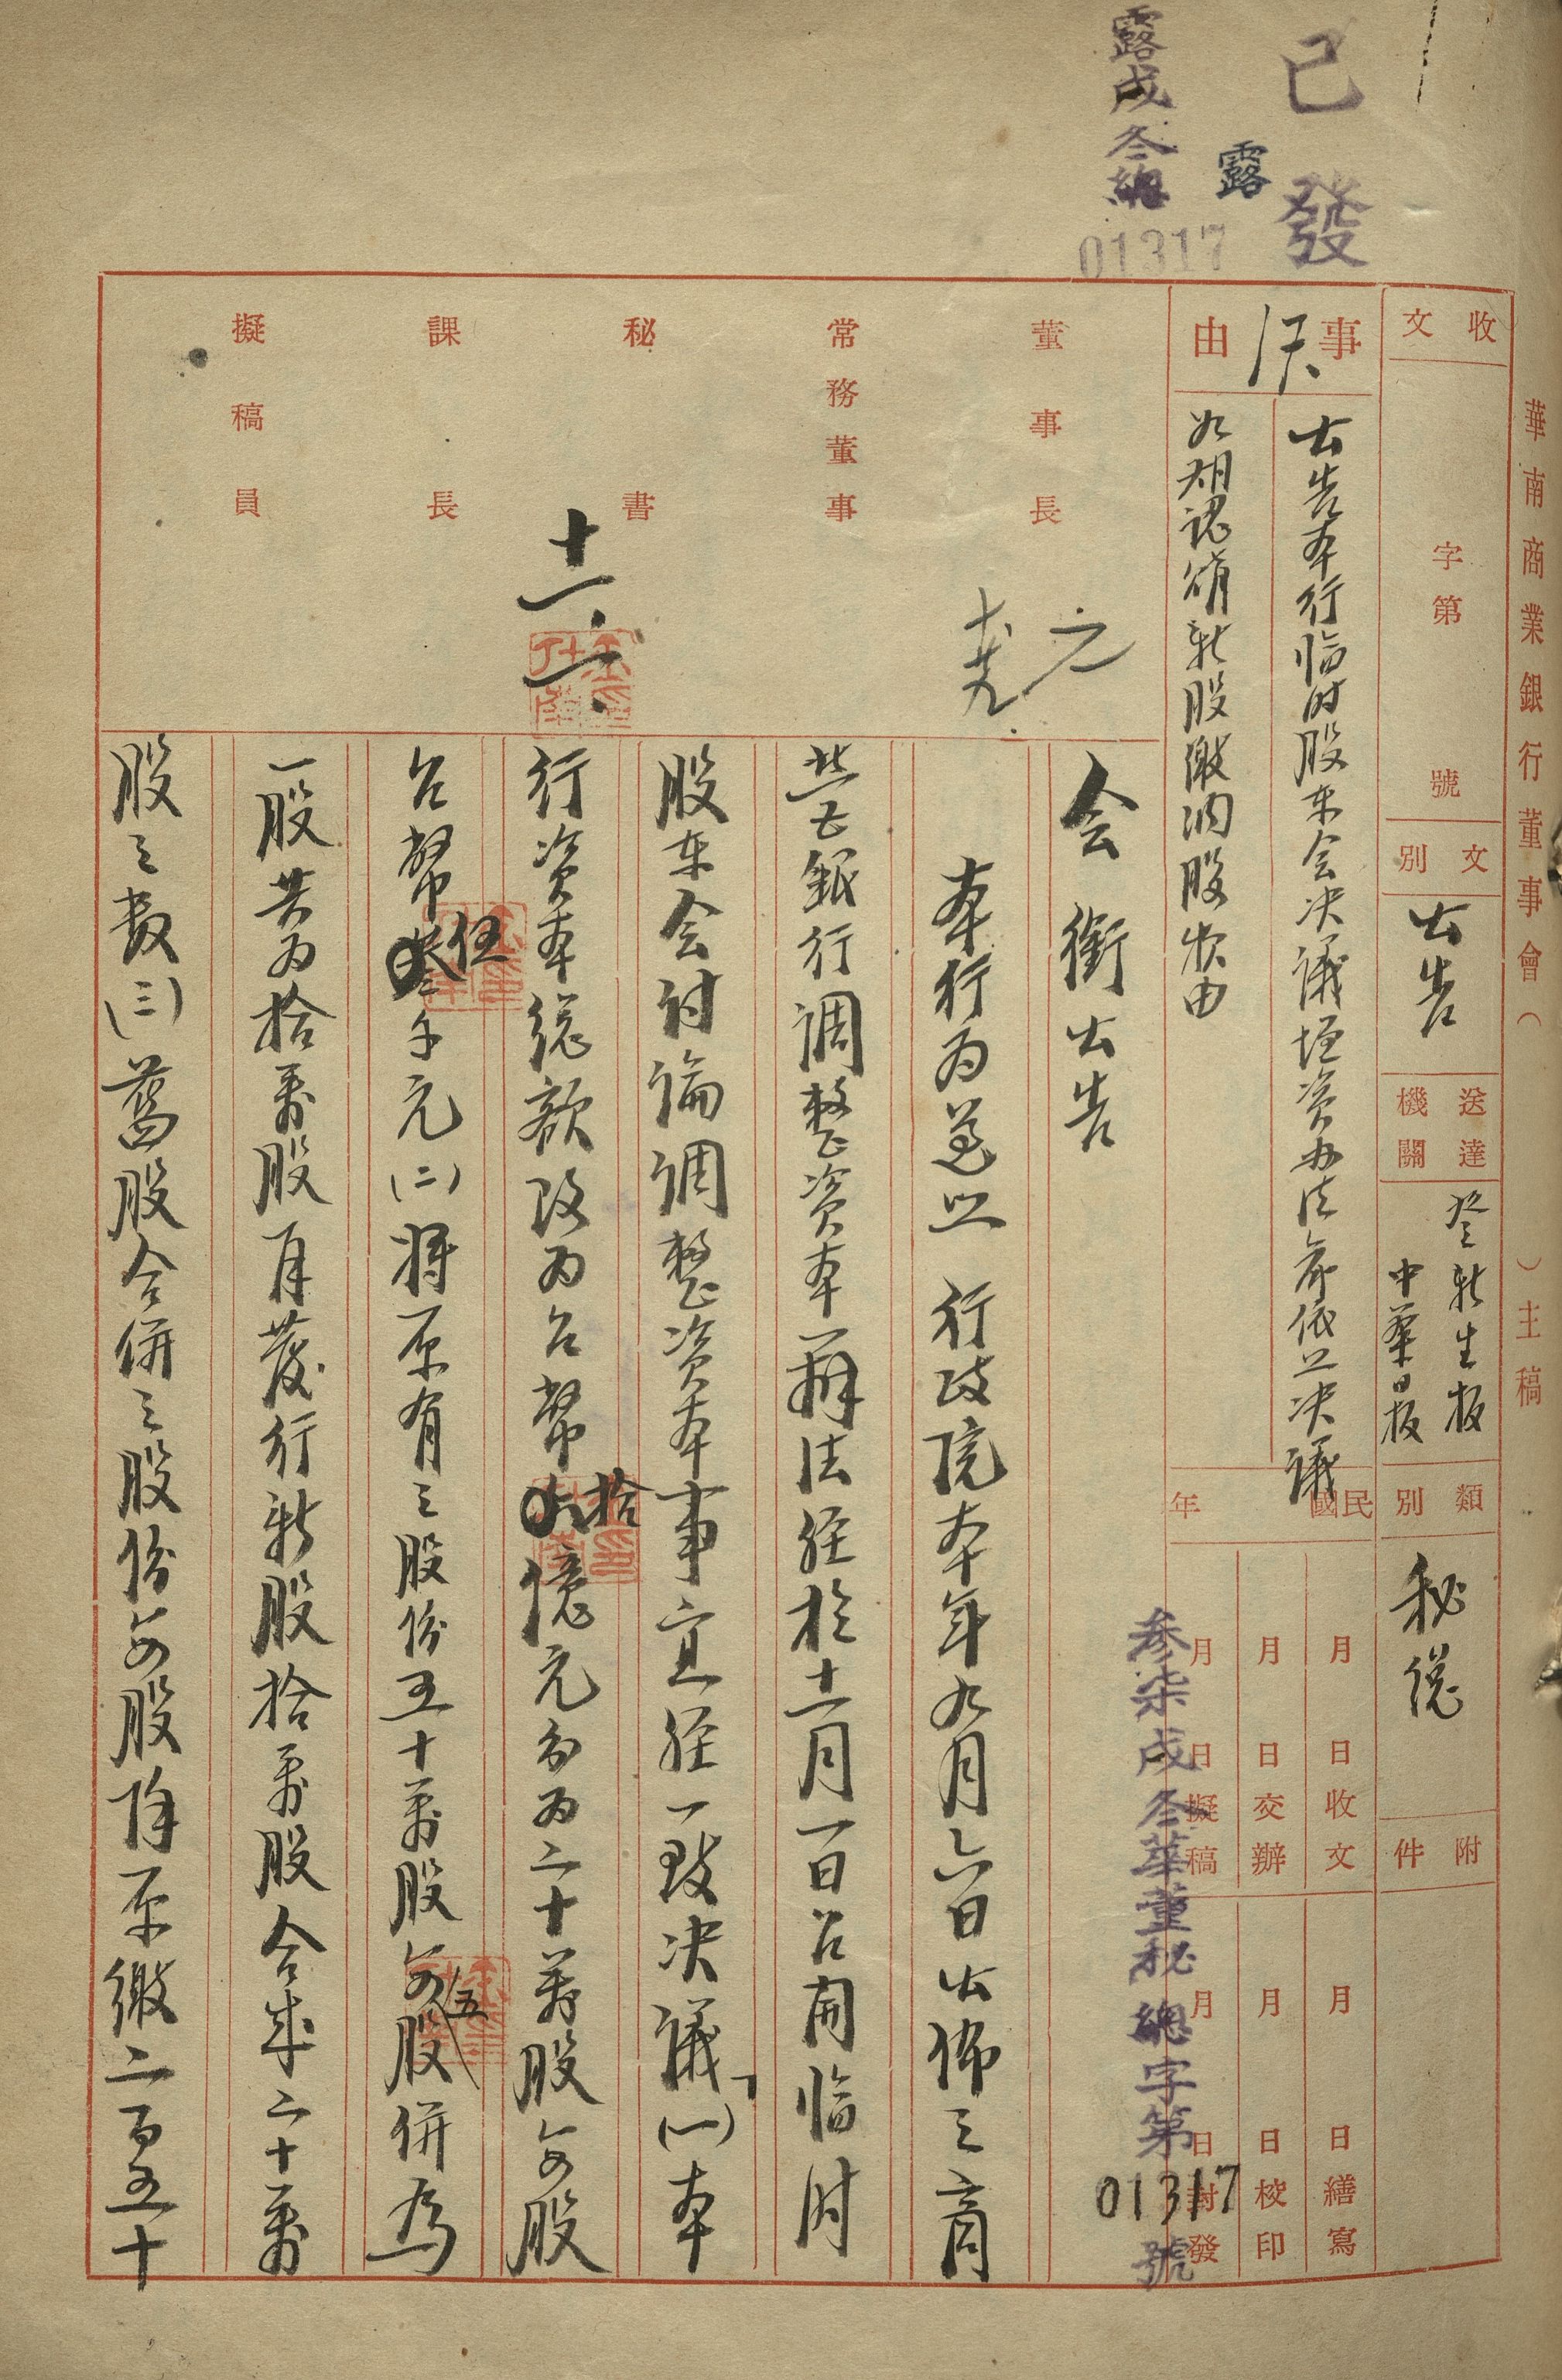 華南商業銀行董事會（　）主稿
收文
字第
號
文別
公告
送達機關
登新生報
中華日報
類別
秘總
附件
事由
公告本行臨时股东会决議增资办法希依照决議
如期认缴新股缴納股款由
民國
年
月
日收文
月
日繕寫
月
日交辦
月
日校印
月
日擬稿
月
日封發
已發
露
露戍冬總
01317
参柒戍冬華董秘總字第
01317
號
董事長
常務董事
秘書
課長
擬稿員
十一.一.
会銜公告
本行为遵照　行政院本年九月六日公佈之商
業銀行調整资本辦法經於十一月一日召開臨时
股东会討論調整资本事宜經一致决議「(一)本
行资本總額改为台幣拾億元分为二十萬股每股
台幣伍千元(二)将原有之股份五十萬股每五股併為
一股共为拾萬股再發行新股拾萬股合成二十萬
股之數(三)舊股合併之股份每股除原繳二百五十